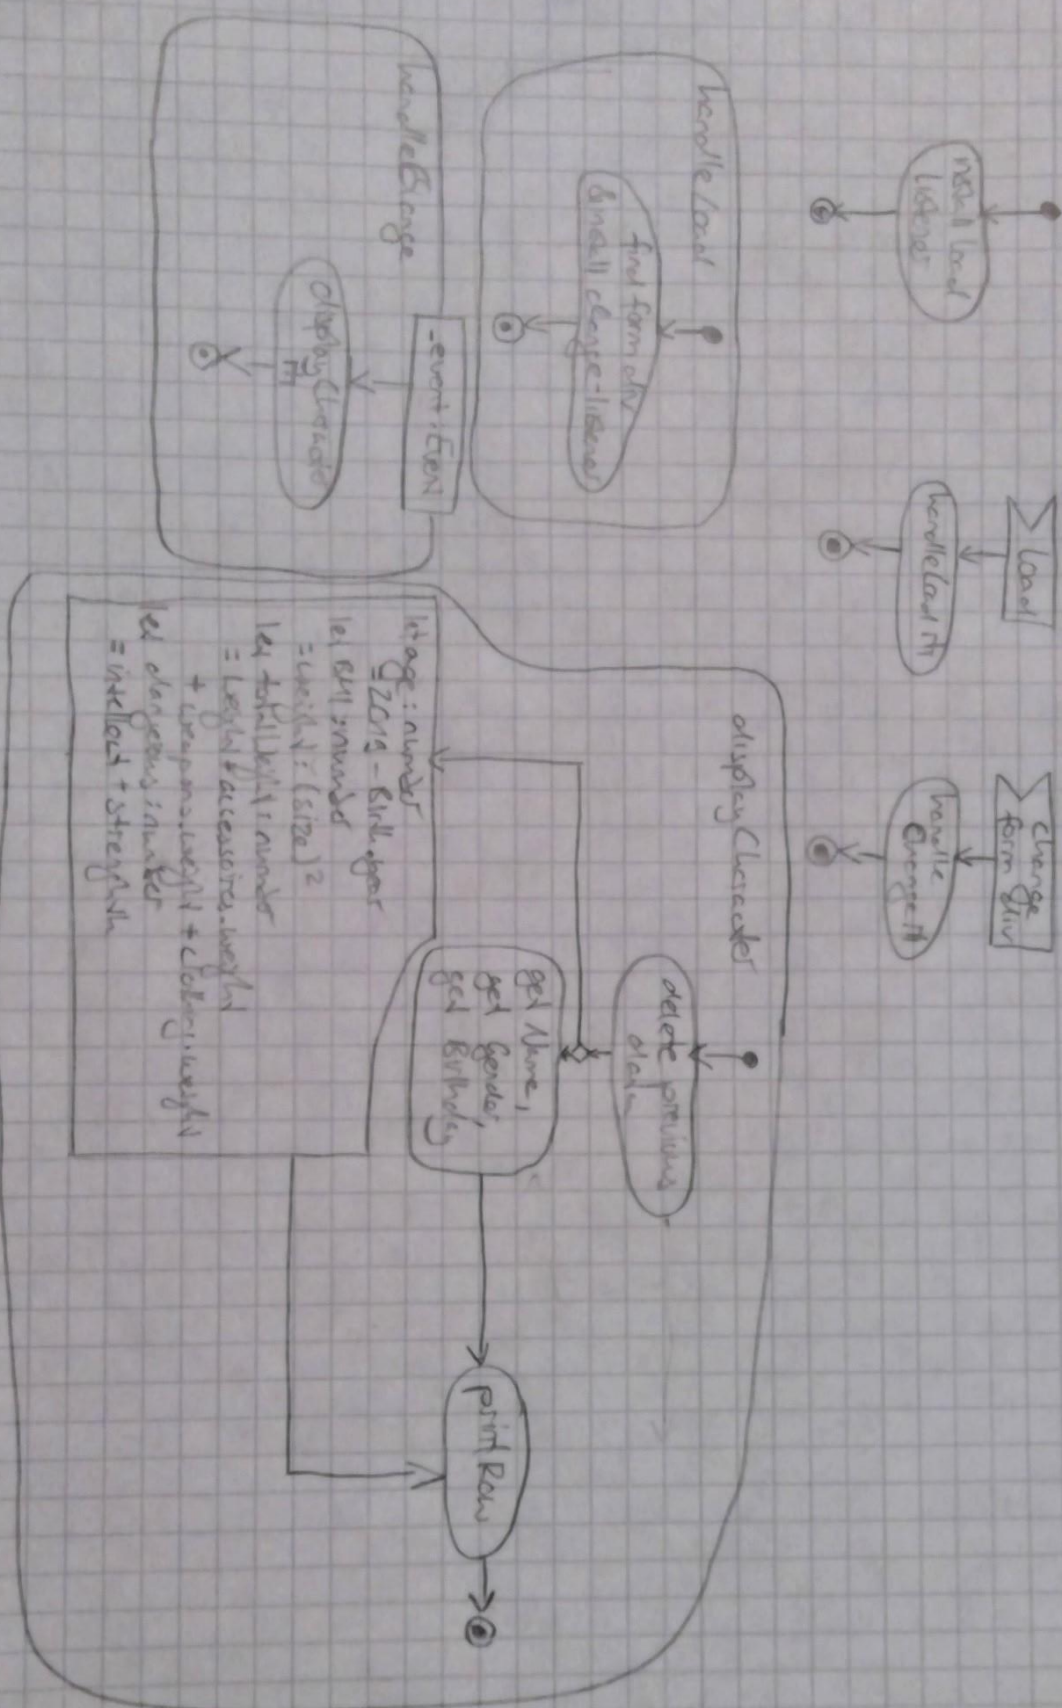 install load
listener
load
handleload
change
form div
handle
Change
handleload
find form div
& install change-listener
handleChange
_event: Event
displayCharacter
displayCharacter
delete previous
data
get Name,
get Gender,
get Birthday
let age: number
= 2019 - Birth.year
let BMI: number
= weight : (size)²
let total weight: number
= weight + accessoires.weight
+ weapons.weight + clothing.weight
let dangerous: number
= intellect + strength
print Row